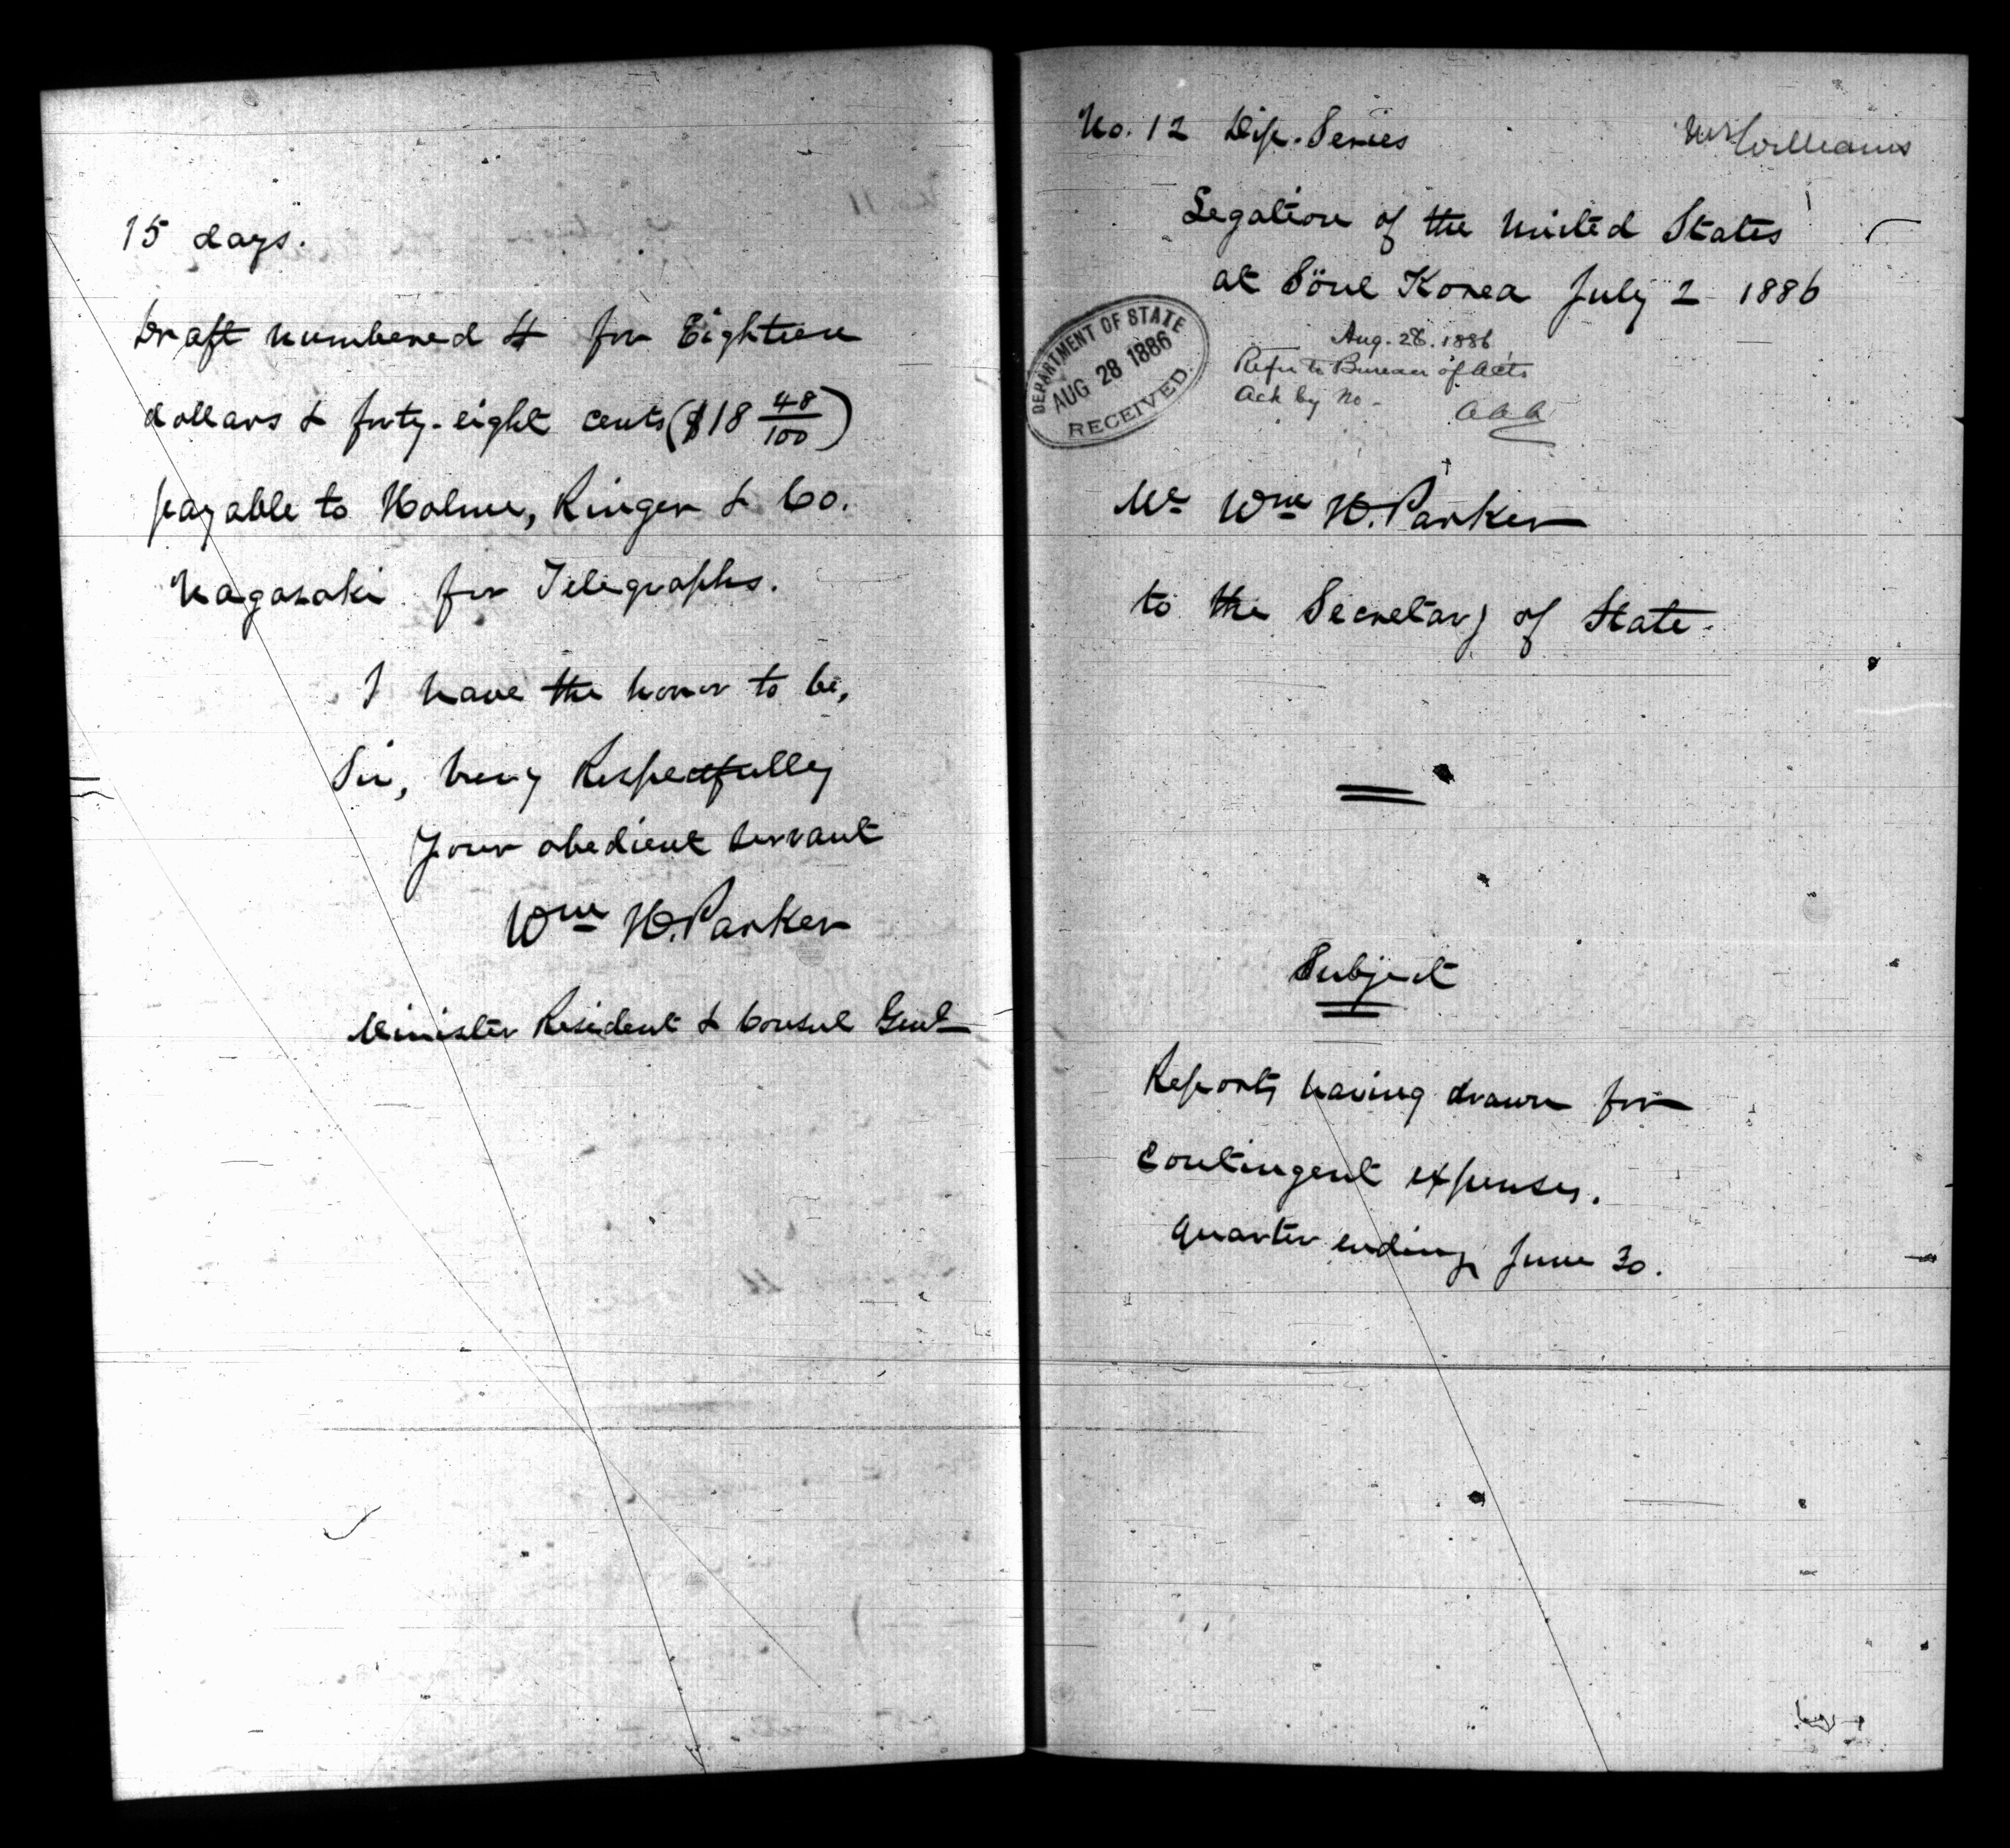 15 days.
Draft numbered 4 for Eighteen
dollars & forty-eight cents ($18 48/100)
payable to Holme, Ringer & Co.
Nagasaki for Telegraphs.
I have the honor to be,
Sir, very Respectfully
Your obedient servant
Wm H. Parker
Minister Resident & Consul Genl
No. 12 Dip. Series
Mr Williams
Legation of the United States
at Söul Korea July 2 1886
DEPARTMENT OF STATE
AUG 28 1886
RECEIVED.
Aug. 28. 1886
Refer to Bureau of Acts
Ack by No -
Mr Wm H. Parker
to the Secretary of State.
Subject
Reports having drawn for
Contingent expenses.
Quarter ending June 30.